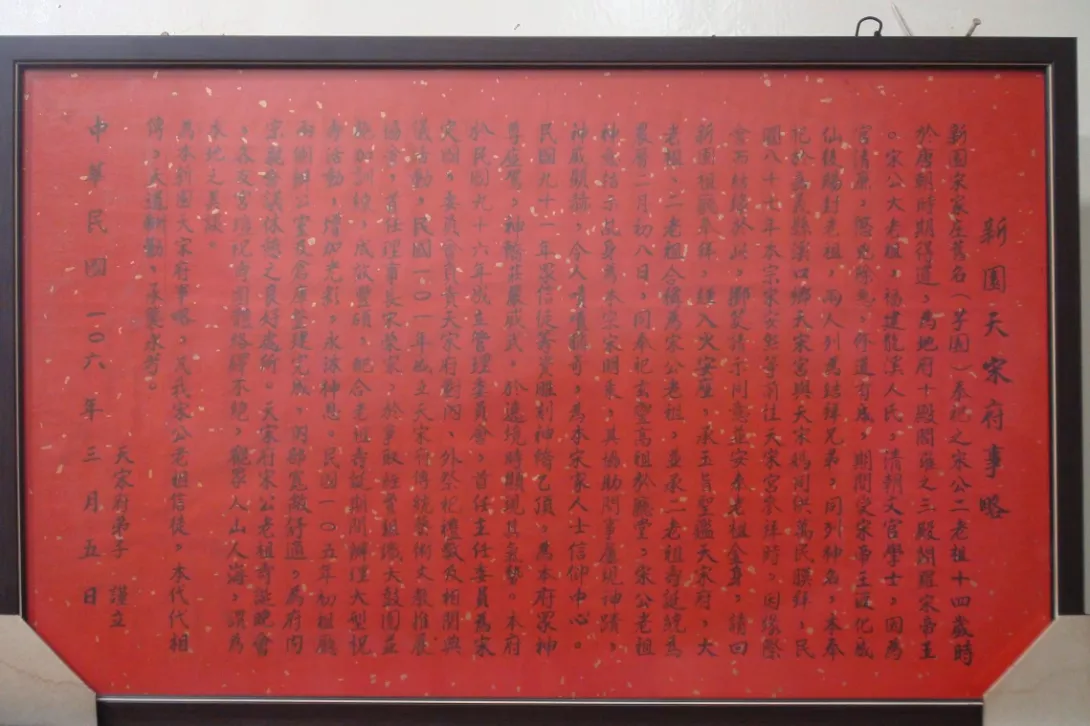 新園天宋府事略
新園宋家庄舊名（芋園）奉祀之宋公二老祖十四歲時
於唐朝時期得道，為地府十殿閻羅之三殿閻羅宋帝王
。宋公大老祖，福建龍溪人氏，清朝文官學士，因為
官清廉，修道有成，期間受宋帝王
仙後賜封老祖，兩人列為結拜兄弟，同列神名，本奉
祀於嘉義縣溪口鄉天宋宮與天宋媽同供萬民膜拜，民
國八十七年本宗宋安彭等前往天宋宮參拜時，因緣際
會於此，擲筊請示同意並安奉老祖金身，請回
新園祖龍奉拜，經入火安座，承玉旨聖鑑天宋府，大
老祖、二老祖合稱為宋公老祖，並承二老祖壽誕統為
農曆二月初八日，同奉祀玄靈高祖於廳堂，宋公老祖
神意指示
神威顯赫，令人嘖嘖稱奇，為本宋家人士信仰中心。
民國九十一年眾信徒籌資雕刻神轎乙頂，為本府眾神
尊座駕，神轎莊嚴威武，於遶境時顯現其氣勢。本府
於民國九十六年成立管理委員會，首任主任委員為宋
定國，委員會負責天宋府對內、外祭祀禮數及相關與
儀活動，民國一０一年成立天宋府傳統藝術文教推展
協會，首任理事長宋榮家，於爭取經費組織大鼓團並
施加訓練，成效豐碩，配合老祖壽誕期間辦理大型祝
壽活動，增加光彩，永沐神恩。民國一０五年初祖廳
兩側辦公室及倉庫整建完成，內部寬敞舒適，為府內
宗親會議休憩之良好處所。天宋府宋公老祖壽誕晚會
，各友宮壇院廟團體絡繹不絕，觀眾人山人海，謂為
本地之美談。
為本新園天宋府事略，及我宋公老祖信徒，本代代相
傳，天道酬勤，承襲永芳。
天宋府弟子　謹立
中華民國一０六年三月五日